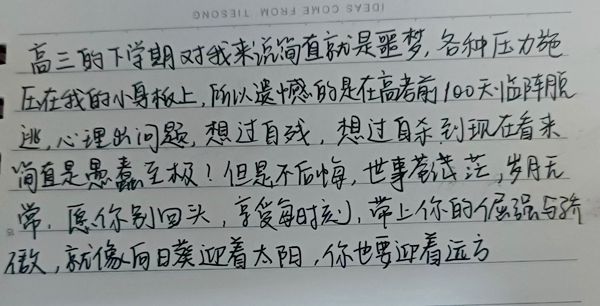 IDEAS COME FROM TIESONG
高三的下学期对我来说简直就是噩梦,各种压力施
压在我的小身板上,所以遗憾的是在高考前100天临阵脱
逃,心理出问题,想过自残,想过自杀,到现在看来
简直是愚蠢至极!但是不后悔,世事茫茫,岁月无
常.愿你别回头,享受每时刻,带上你的倔强与骄
傲,就像向日葵迎着太阳,你也要迎着远方